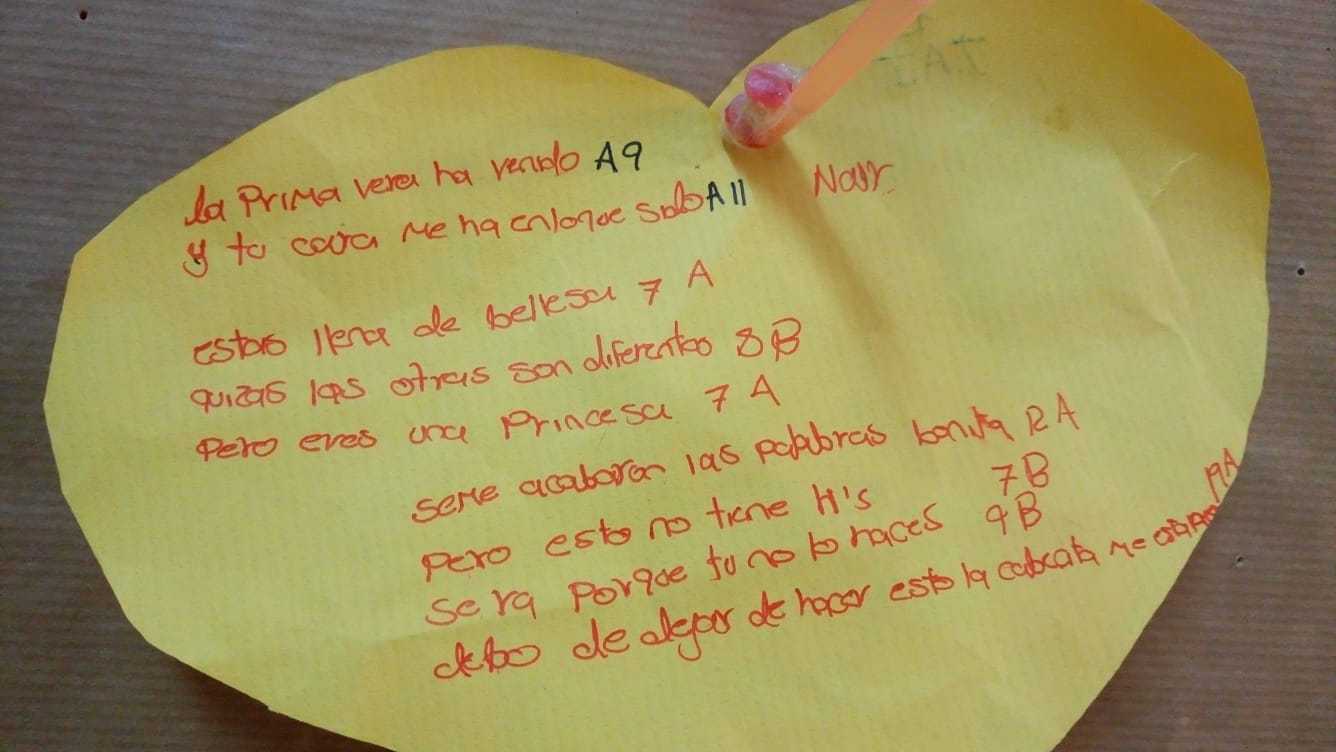 la Prima vera ha venido A9
y tu cara me ha enloque sido A11
Nair
estas llena de bellesa 7 A
quizas las otras son diferentes 8B
Pero eres una Princesa 7 A
seme acabaron las palabras bonita 12 A
Pero esto no tiene H's 7B
se ra Porque tu no lo haces 9B
debo de dejar de hacer esto la cabeata me 19A